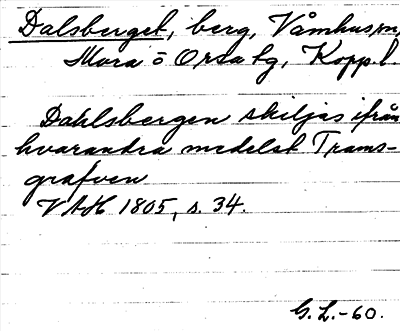 Dalsberget, berg, Våmhus sn,
Mora o Orsa tg, Kopp. l.
Dahlsbergen skiljas ifrån
hvarandra medelst Trams-
grafven
VAH 1805, s. 34.
G. L. - 60.